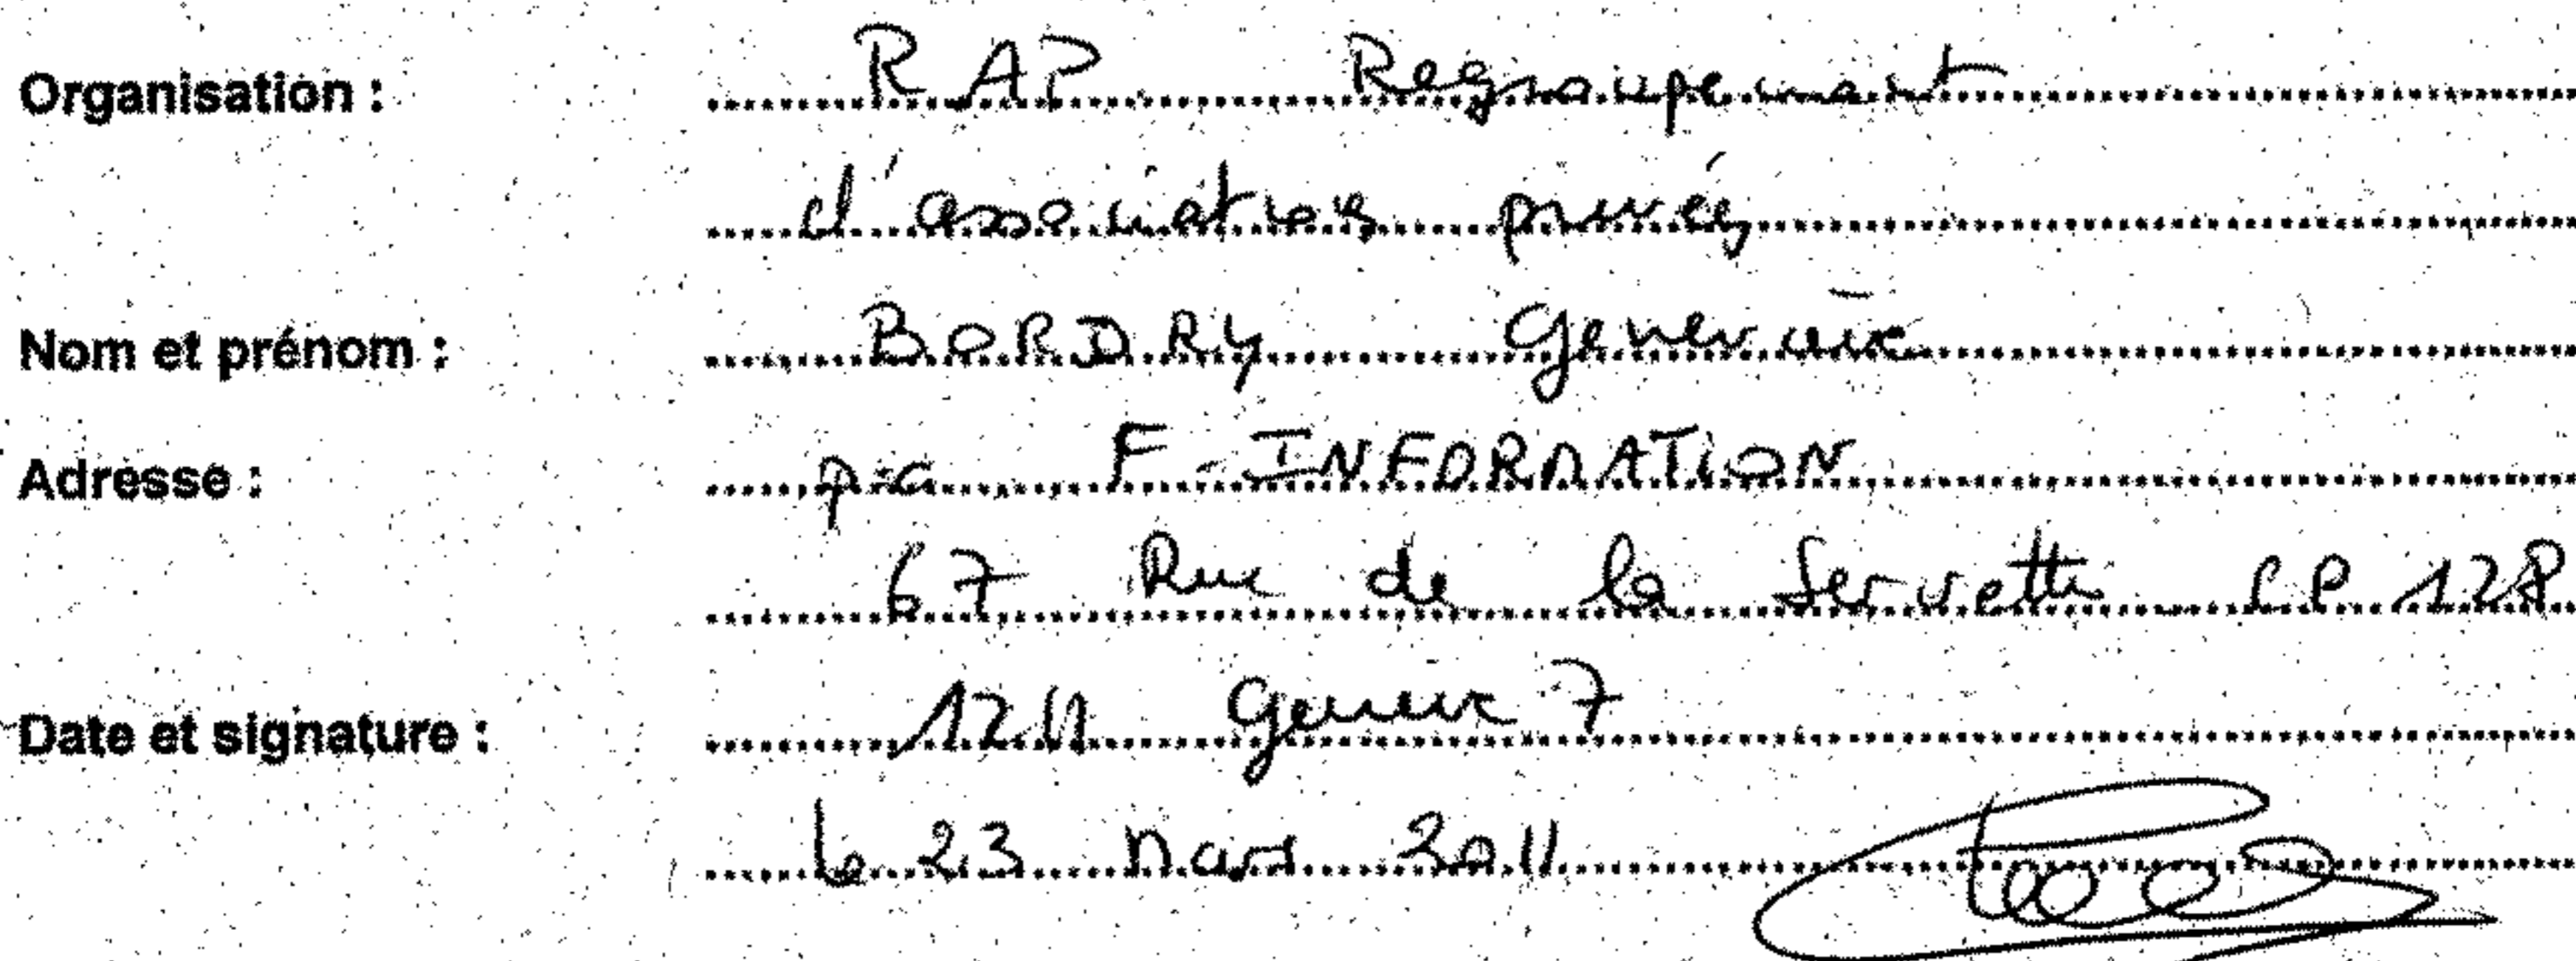 Organisation : RAP Regroupement
d'associations privées
Nom et prénom : BORDRY Geneviève
Adresse : p.a F-INFORMATION
67 Rue de la Servette C.P. 128
Date et signature : 1211 Genève 7
le 23 Mars 2011